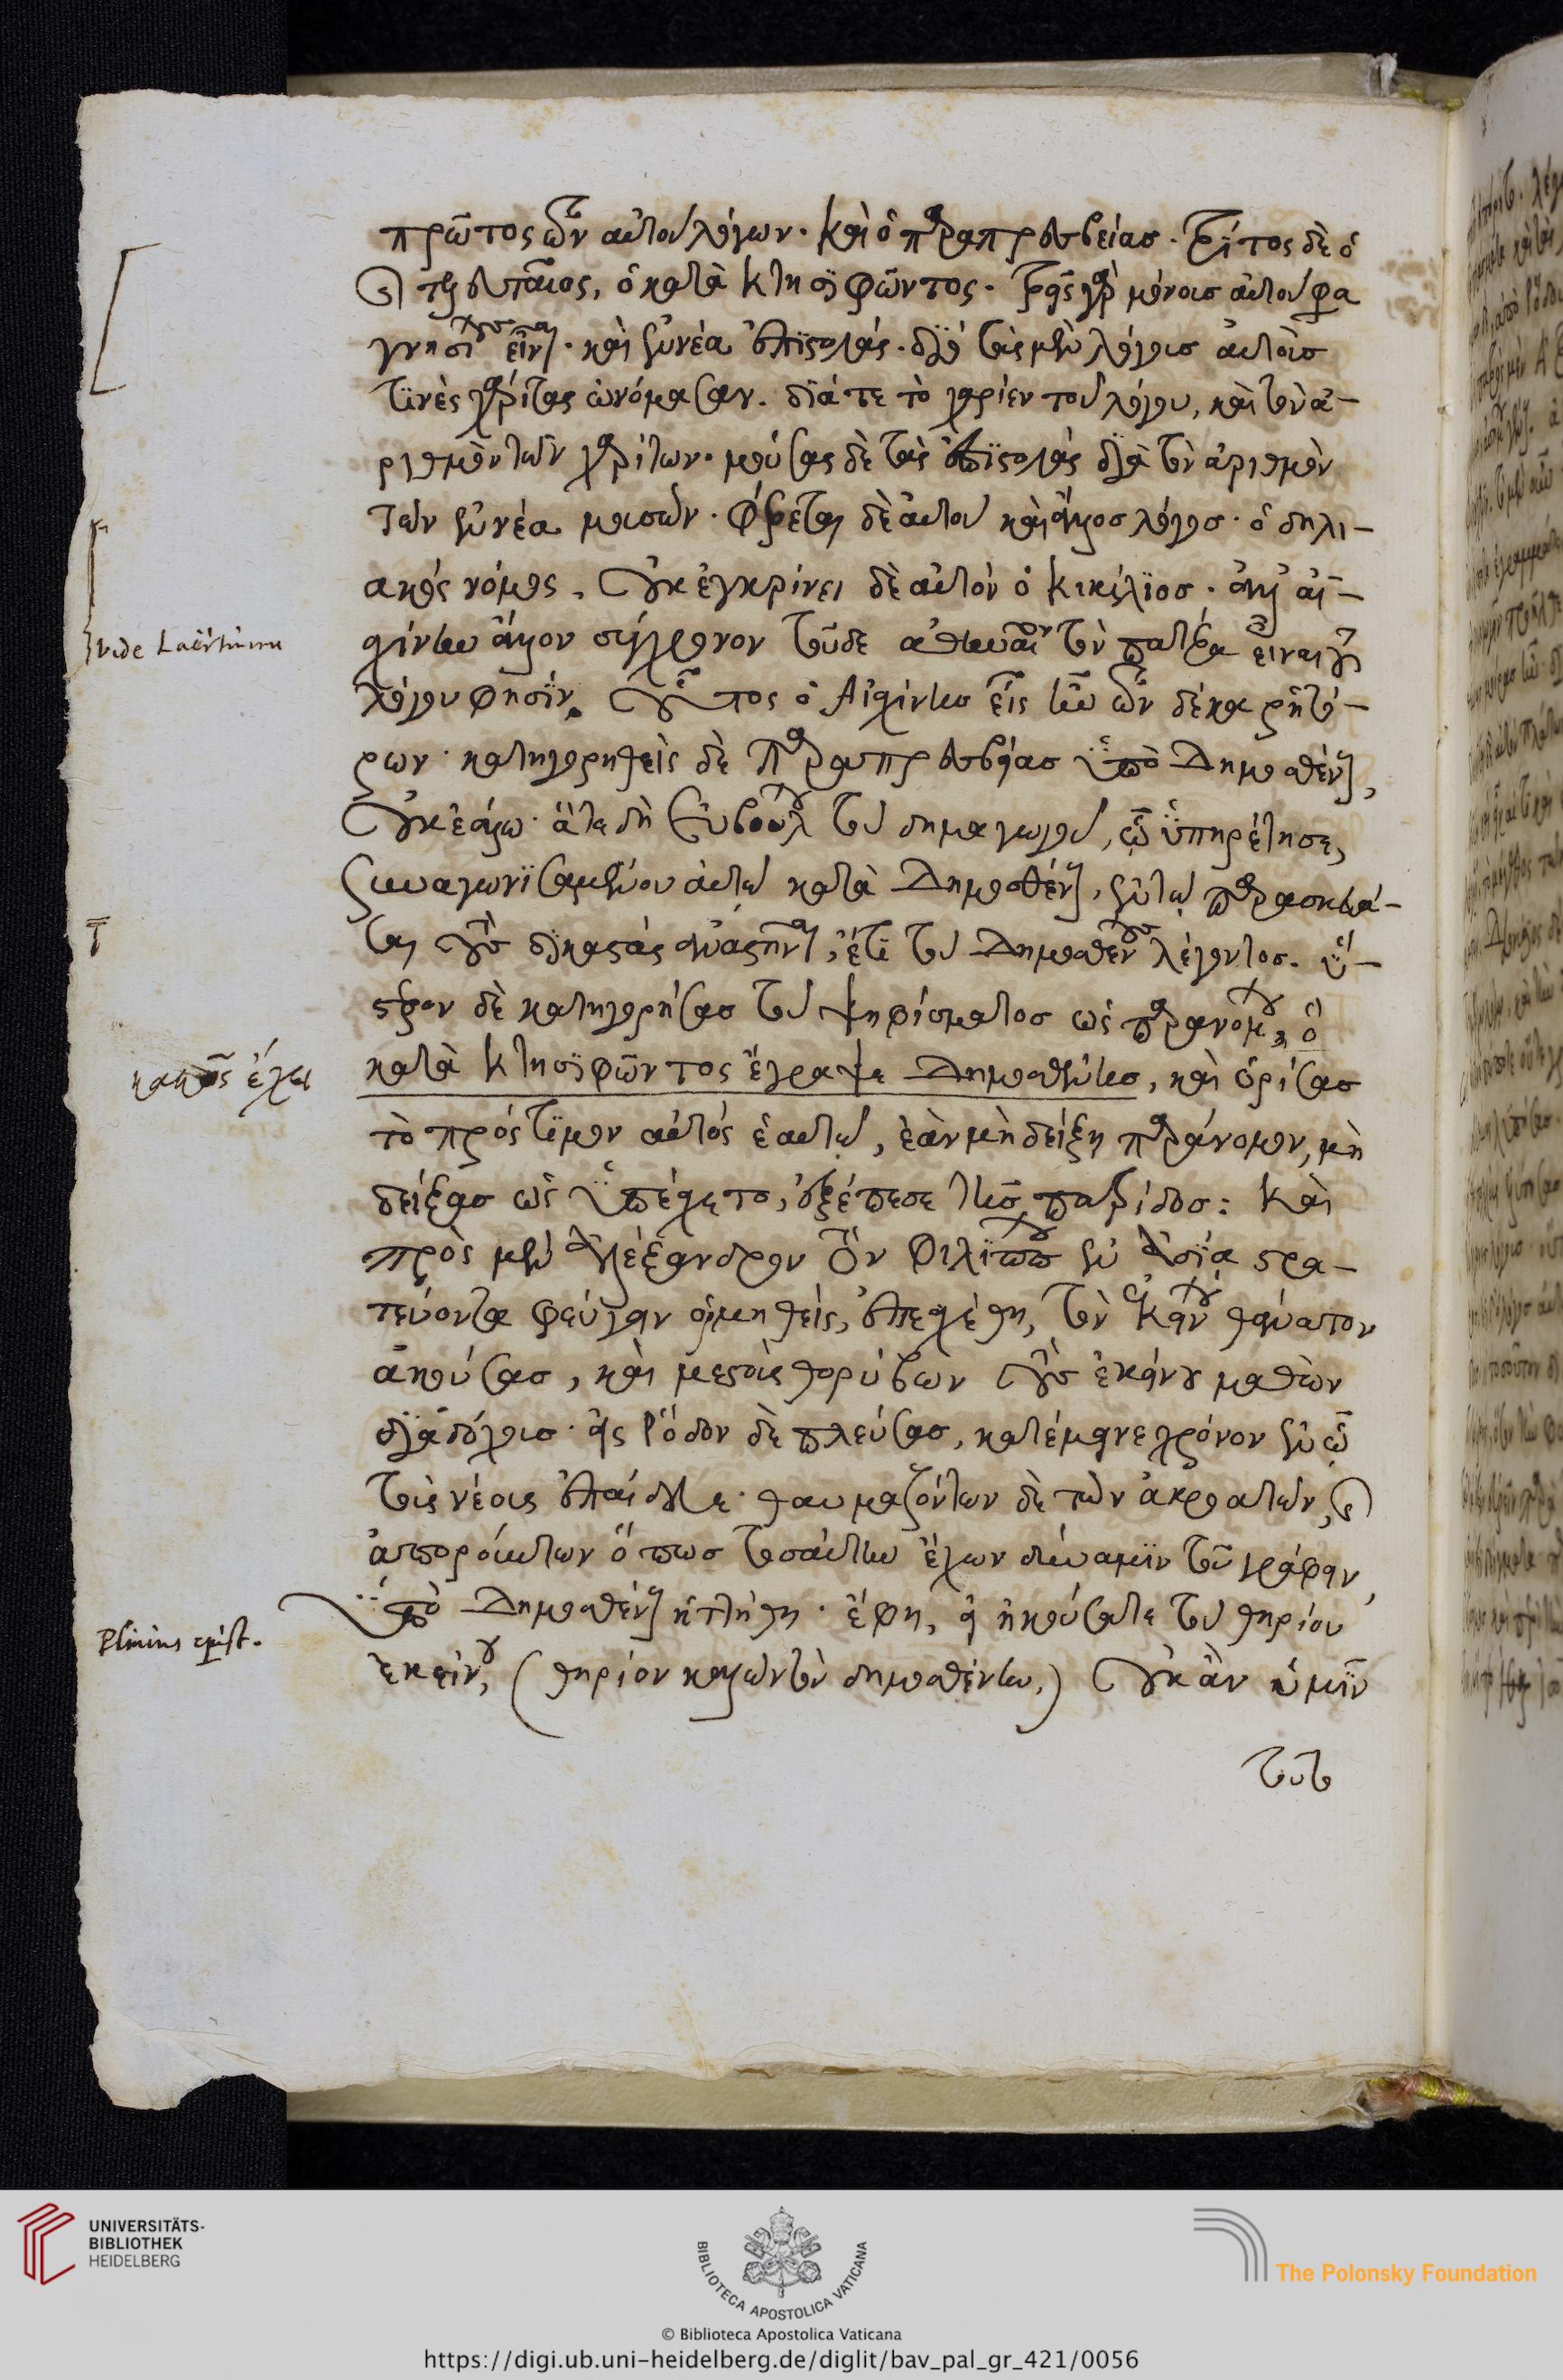 πρῶτος τῶν αὐτοῦ λόγων. καὶ ὁ παραπρεσβείας. τρίτος δὲ ὁ
καὶ τελευταῖος, ὁ κατὰ Κτησϊφῶντος. τρεῖς γὰρ μόνους αὐτοῦ φασι
γνησίους εἶναι. καὶ ἐννέα ἐπϊστολάς. διὸ τοὺς μὲν λόγους αὐτοῦ
τϊνὲς χάριτας ὠνόμασαν. διά τε τὸ χαρίεν τοῦ λόγου, καὶ τὸν ἀ-
ριθμὸν τῶν χαρίτων. μούσας δὲ τὰς ἐπϊστολάς διὰ τὸν ἀριθμὸν
τῶν ἐννέα μουσῶν. φέρεται δὲ αὐτοῦ καὶ ἄλλος λόγος. ὁ δηλι-
ακὸς νόμος. οὐκ ἐγκρίνει δὲ αὐτὸν ὁ Κικίλϊος. ἀλλ' αἰ-
σχίνην ἄλλον σύγχρονον τοῦδε ἀθηναῖον τὸν πατέρα εἶναι τοῦ
λόγου φησϊν. οὗτος ὁ Αἰσχίνης εἷς ἦν τῶν δέκα ῥητό-
ρων. κατηγορηθεὶς δὲ παραπρεσβείας ὑπὸ Δημοσθένους,
οὐκ ἑάλω. ἅτε δὴ Εὐβούλου τοῦ δημαγωγοῦ, ᾧ ὑπηρέτησε,
συναγωνϊσαμένου αὐτῷ κατὰ Δημοσθένους, ἐν τῷ παρασκευά-
σαι τοὺς δϊκαστὰς ἀναστῆναι, ἔτϊ τοῦ Δημοσθένους λέγοντος. ὕ-
στερον δὲ κατηγορήσας τοῦ ψηφίσματος ὡς παρανόμου, ὃ
κατὰ Κτησϊφῶντος ἔγραψε Δημοσθένης, καὶ ὁρίσας
τὸ πρόστϊμον αὐτὸς ἑαυτῷ, ἐὰν μὴ δείξῃ παράνομον, μὴ
δείξας ὡς ὑπέσχετο, ἐξέπεσε τῆς πατρίδος: Καὶ
πρὸς μὲν Ἀλέξανδρον τὸν Φιλίππου ἐν Ἀσΐᾳ στρα-
τεύοντα φεύγειν ὁρμηθείς, ἐπεσχέθη, τὸν ἐκείνου θάνατον
ἀκούσας, καὶ μεστοὺς θορύβων τοὺς ἐκείνου μαθὼν
διαδόχους. εἰς Ῥόδον δὲ πλεύσας, κατέμεινε χρόνον ἐν ᾧ
τοὺς νέους ἐπαίδευε. θαυμαζόντων δὲ τῶν ἀκροατῶν, καὶ
ἀπορούντων ὅπως τοσαύτην ἔχων δύναμϊν τοῦ γράφειν,
ὑπὸ Δημοσθένους ἡττήθη. ἔφη, εἰ ἠκούσατε τοῦ θηρίου
ἐκείνου, (θηρίον καλῶν τὸν δημοσθένην,) οὐκ ἂν ὑμῖν
τοῦτο
vide Laërtium
κακῶς ἔχει
Plinius epist.
UNIVERSITÄTS-
BIBLIOTHEK
HEIDELBERG
BIBLIOTECA APOSTOLICA VATICANA
© Biblioteca Apostolica Vaticana
The Polonsky Foundation
https://digi.ub.uni-heidelberg.de/diglit/bav_pal_gr_421/0056